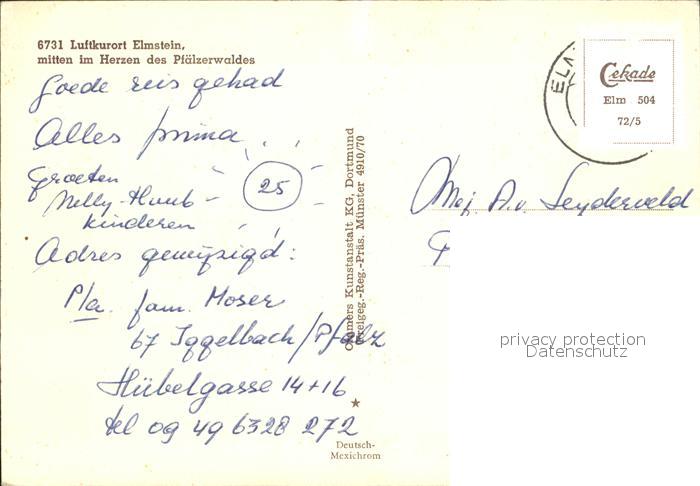 6731 Luftkurort Elmstein,
mitten im Herzen des Pfälzerwaldes
Goede reis gehad
Alles prima
Groeten
Nelly - Huub -
kinderen
25
Adres gewijzigd:
P/a fam. Moser
67 Iggelbach/Pfalz
Hübelgasse 14+16
tel 09 49 6328 272
Deutsch-
Mexichrom
Cramers Kunstanstalt KG, Dortmund
Freigeg.-Reg.-Präs. Münster 4910/70
ELM
Cekade
Elm 504
72/5
Mej. A.v. Leyderveld
privacy protection
Datenschutz